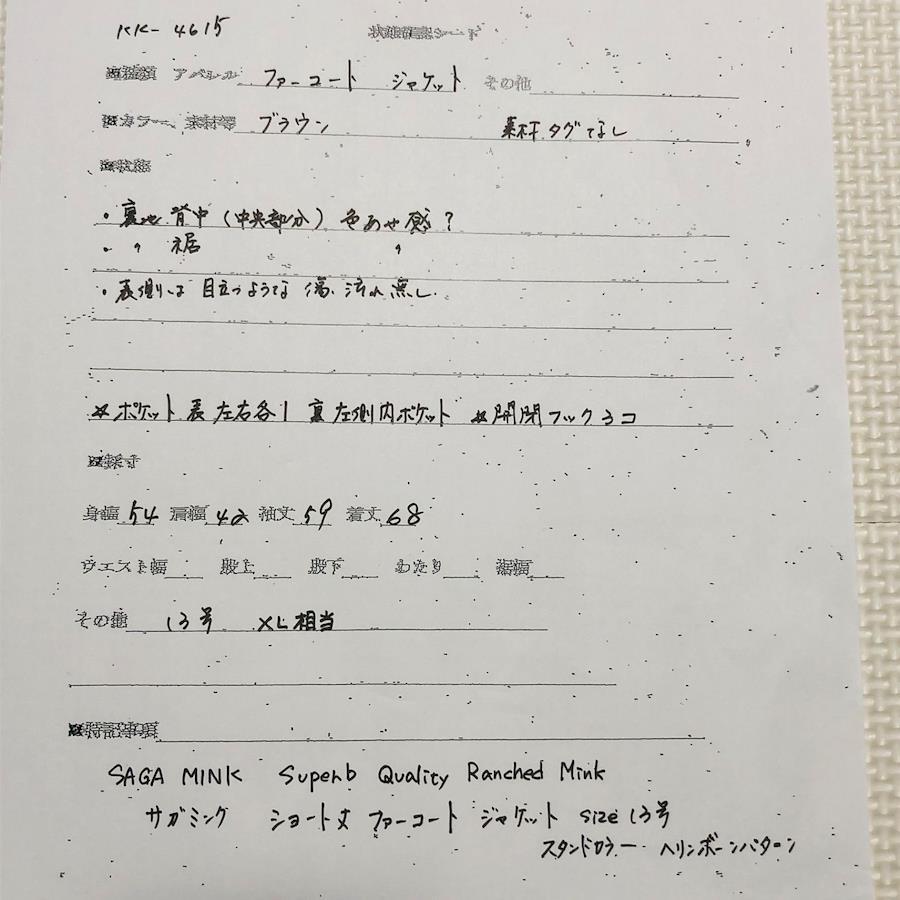 KK-4615 状態確認シート
■種類 アパレル ファーコート ジャケット その他
■カラー、素材等 ブラウン 素材タグなし
■状態
・裏地 背中(中央部分)色あせ感?
・〃 裾 〃
・表側は目立つような傷、汚れ無し.
※ポケット 表 左右各1 裏 左側内ポケット ※開閉フック3コ
■採寸
身幅 54 肩幅 42 袖丈 59 着丈 68
ウエスト幅 股上 股下 わたり 裾幅
その他 13号 XL相当
■特記事項
SAGA MINK Superb Quality Ranched Mink
サガミンク ショート丈 ファーコート ジャケット size 13号
スタンドカラー ヘリンボーンパターン